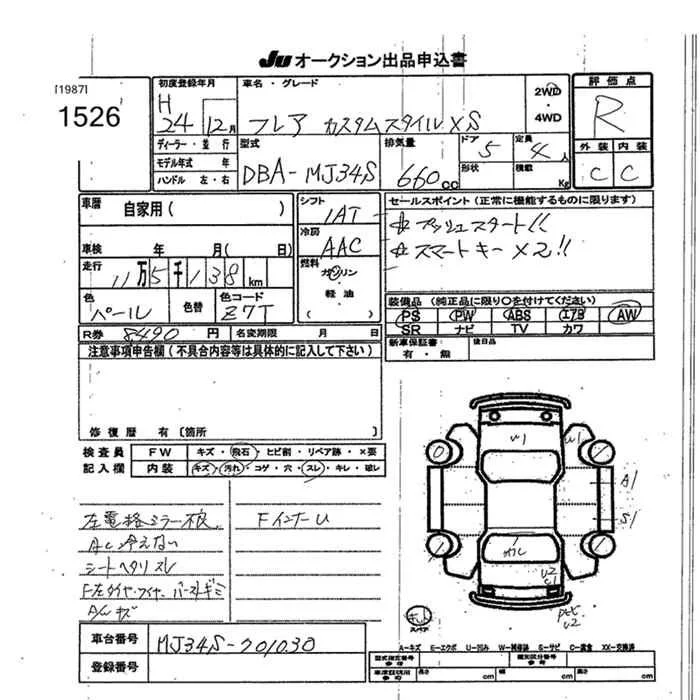 JU オークション出品申込書
[1987]
1526
初度登録年月
H 24年 12月
車名・グレード
フレア カスタムスタイル XS
2WD
・
4WD
評価点
R
ディーラー・並行
モデル年式 年
ハンドル 左・右
型式
DBA-MJ34S
排気量
660cc
ドア
5
形状
定員
4人
積載
Kg
外装 内装
C C
車歴
自家用( )
シフト
IAT
セールスポイント(正常に機能するものに限ります)
☆プッシュスタート!!
☆スマートキー×2!!
車検 年 月( 日)
冷房
AAC
走行
11万5千138km
燃料
ガソリン
・
軽油
( )
色
パール
色替
色コード
Z7T
装備品(純正品に限り○を付けてください)
PS PW ABS エアB AW
SR ナビ TV カワ
R券 8490円
名変期限 月 日
新車保証書
有・無
後日品
注意事項申告欄(不具合内容等は具体的に記入して下さい)
修復歴 有〔箇所 〕
検査員
記入欄
FW キズ・飛石・ヒビ割・リペア跡・×要
内装 キズ・汚れ・コゲ・穴・スレ・キレ・破レ
左電格ミラー不良
ACと冷えない
シートヘタリスレ
F左タイヤ・ワイヤーバーストギミ
A/Wキズ
FインナーU
U1
U1
A1
S1
U2
U2
スペア
車台番号
MJ34S-701030
登録番号
A-キズ E-エクボ U-凹み W-補修跡 S-サビ C-腐食 XX-交換済
長さ cm 幅 cm 高さ cm